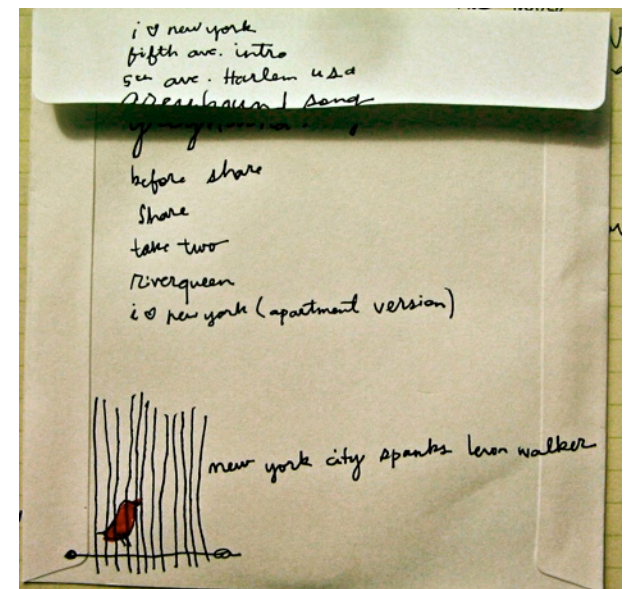 i ♡ new york
fifth ave. intro
5th ave. Harlem usa
greyhound song
before share
Share
take two
riverqueen
i ♡ new york (apartment version)
new york city spanks leron walker